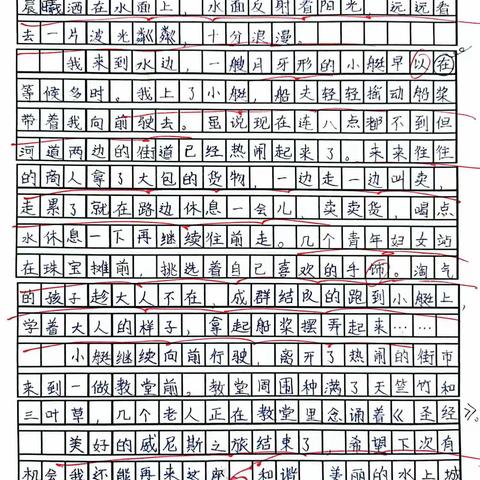 晨曦洒在水面上，水面反射着阳光，远远看
去一片波光粼粼，十分浪漫。
我来到水边，一艘月牙形的小艇早以在
等候多时。我上了小艇，船夫轻轻摇动船桨
带着我向前驶去。虽说现在连八点都不到但
河道两边的街道已经热闹起来了。来来往往
的商人拿了大包的货物，一边走一边叫卖，
走累了就在路边休息一会儿，卖卖货，喝点
水休息一下再继续往前走。几个青年妇女站
在珠宝摊前，挑选着自己喜欢的手饰。淘气
的孩子趁大人不在，成群结队的跑到小艇上，
学着大人的样子，拿起船桨摆弄起来……
小艇继续向前行驶，离开了热闹的街市
来到一做教堂前。教堂周围种满了天竺竹和
三叶草，几个老人正在教堂里念诵着《圣经》。
美好的威尼斯之旅结束了，希望下次有
机会我还能再来这座和谐、美丽的水上城